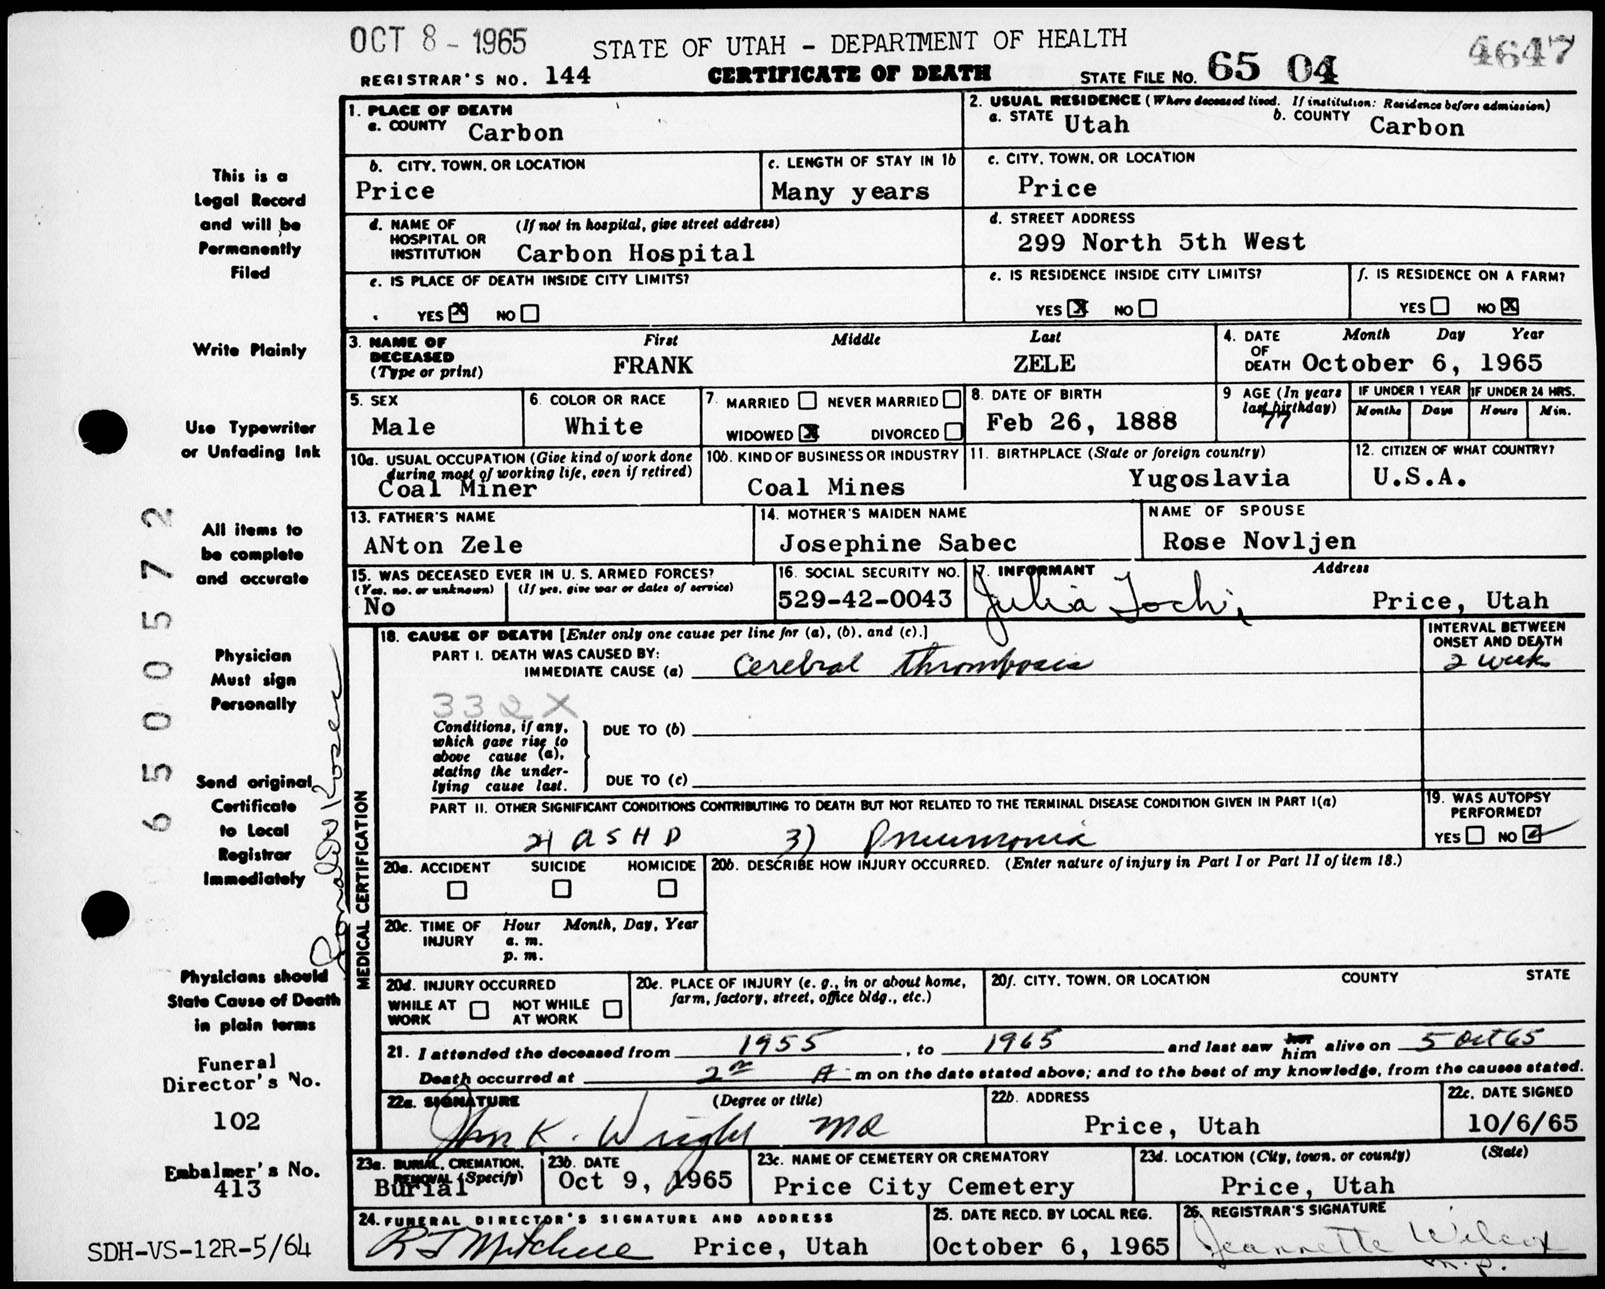 OCT 8 - 1965
STATE OF UTAH - DEPARTMENT OF HEALTH
4647
REGISTRAR'S NO. 144
CERTIFICATE OF DEATH
STATE FILE NO. 65 04
1. PLACE OF DEATH
a. COUNTY Carbon
2. USUAL RESIDENCE (Where deceased lived. If institution: Residence before admission)
a. STATE Utah
b. COUNTY Carbon
b. CITY, TOWN, OR LOCATION
Price
c. LENGTH OF STAY IN 1b
Many years
c. CITY, TOWN, OR LOCATION
Price
d. NAME OF HOSPITAL OR INSTITUTION
(If not in hospital, give street address)
Carbon Hospital
d. STREET ADDRESS
299 North 5th West
e. IS PLACE OF DEATH INSIDE CITY LIMITS?
YES X NO
e. IS RESIDENCE INSIDE CITY LIMITS?
YES X NO
f. IS RESIDENCE ON A FARM?
YES NO X
3. NAME OF DECEASED (Type or print)
First Middle Last
FRANK ZELE
4. DATE OF DEATH
Month Day Year
October 6, 1965
5. SEX
Male
6. COLOR OR RACE
White
7. MARRIED NEVER MARRIED
WIDOWED X DIVORCED
8. DATE OF BIRTH
Feb 26, 1888
9 AGE (In years last birthday)
77
IF UNDER 1 YEAR
Months Days
IF UNDER 24 HRS.
Hours Min.
10a. USUAL OCCUPATION (Give kind of work done during most of working life, even if retired)
Coal Miner
10b. KIND OF BUSINESS OR INDUSTRY
Coal Mines
11. BIRTHPLACE (State or foreign country)
Yugoslavia
12. CITIZEN OF WHAT COUNTRY?
U.S.A.
13. FATHER'S NAME
ANton Zele
14. MOTHER'S MAIDEN NAME
Josephine Sabec
NAME OF SPOUSE
Rose Novljen
15. WAS DECEASED EVER IN U.S. ARMED FORCES?
(Yes, no, or unknown) (If yes, give war or dates of service)
No
16. SOCIAL SECURITY NO.
529-42-0043
17. INFORMANT Address
Julia Tochi
Price, Utah
MEDICAL CERTIFICATION
18. CAUSE OF DEATH [Enter only one cause per line for (a), (b), and (c).]
INTERVAL BETWEEN ONSET AND DEATH
PART I. DEATH WAS CAUSED BY:
IMMEDIATE CAUSE (a) Cerebral thrombosis
2 weeks
332X
Conditions, if any, which gave rise to above cause (a), stating the underlying cause last.
DUE TO (b)
DUE TO (c)
PART II. OTHER SIGNIFICANT CONDITIONS CONTRIBUTING TO DEATH BUT NOT RELATED TO THE TERMINAL DISEASE CONDITION GIVEN IN PART I(a)
2) ASHD 3) Pneumonia
19. WAS AUTOPSY PERFORMED?
YES NO
20a. ACCIDENT SUICIDE HOMICIDE
20b. DESCRIBE HOW INJURY OCCURRED. (Enter nature of injury in Part I or Part II of item 18.)
20c. TIME OF INJURY
Hour Month, Day, Year
a. m.
p. m.
20d. INJURY OCCURRED
WHILE AT WORK NOT WHILE AT WORK
20e. PLACE OF INJURY (e. g., in or about home, farm, factory, street, office bldg., etc.)
20f. CITY, TOWN, OR LOCATION COUNTY STATE
21. I attended the deceased from 1955, to 1965 and last saw her him alive on 5 Oct 65
Death occurred at 2 A m on the date stated above; and to the best of my knowledge, from the causes stated.
22a. SIGNATURE (Degree or title)
John K. Wright MD
22b. ADDRESS
Price, Utah
22c. DATE SIGNED
10/6/65
23a. BURIAL, CREMATION, REMOVAL (Specify)
Burial
23b. DATE
Oct 9, 1965
23c. NAME OF CEMETERY OR CREMATORY
Price City Cemetery
23d. LOCATION (City, town, or county) (State)
Price, Utah
24. FUNERAL DIRECTOR'S SIGNATURE AND ADDRESS
Mitchell Price, Utah
25. DATE RECD. BY LOCAL REG.
October 6, 1965
26. REGISTRAR'S SIGNATURE
Jeannette Wilcox
This is a
Legal Record
and will be
Permanently
Filed
Write Plainly
Use Typewriter
or Unfading Ink
All items to
be complete
and accurate
Physician
Must sign
Personally
Send original
Certificate
to Local
Registrar
Immediately
Physicians should
State Cause of Death
in plain terms
Funeral
Director's No.
102
Embalmer's No.
413
SDH-VS-12R-5/64
65 00572